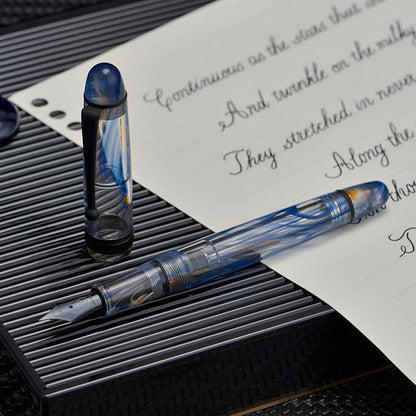 Continuous as the stars that
And twinkle on the milky
They stretched in never
Along the